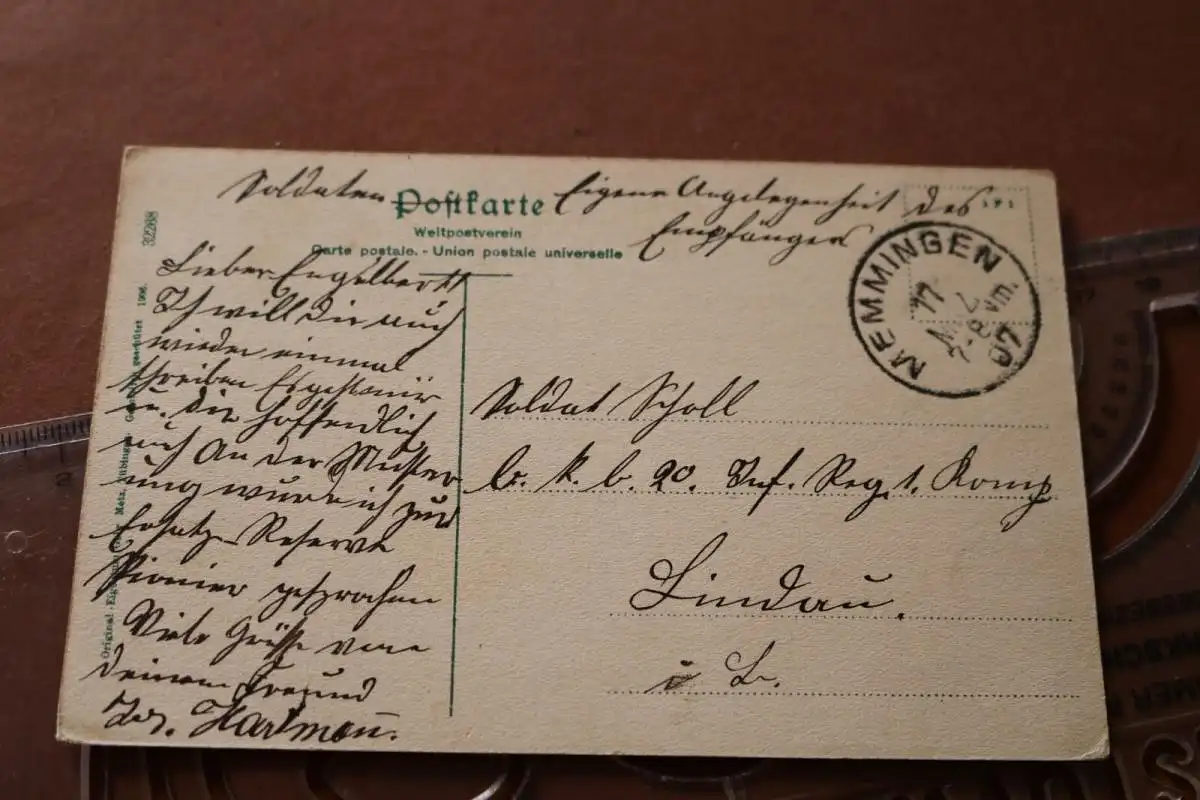 Soldaten Postkarte Eigene Angelegenheit des
Empfängers
Weltpostverein
Carte postale. - Union postale universelle
32268
MEMMINGEN
07
Lieber Engelbert
Ich will dir auch
wieder einmal
schreiben Es geht mir
u. dir hoffentlich
auch An der Muster
ung wurde ich zur
Ersatz-Reserve
Pionier gesprochen
Viele Grüße von
deinem Freund
Hartmann.
Soldat Scholl
b. k. b. 20. Inf. Reg. 1. Komp
Lindau.
i B.